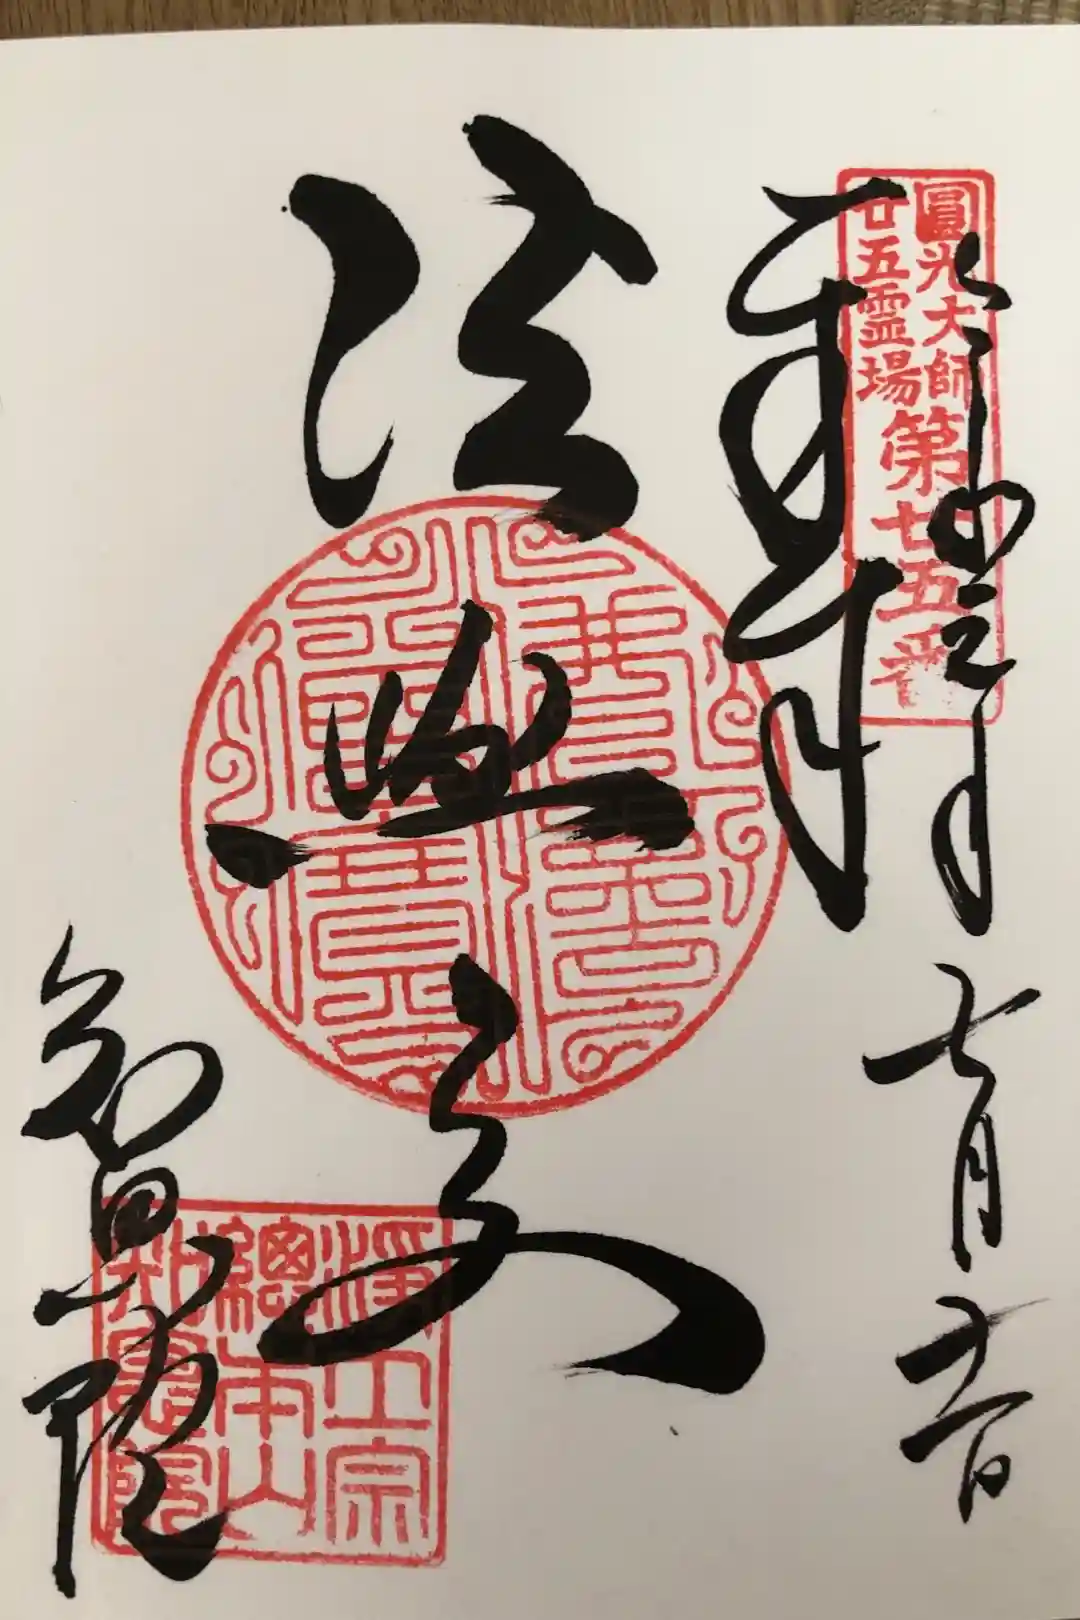 圓光大師
廿五霊場
第廿五番
奉拝
令和元年
七月五日
法然
知恩院
淨土宗
總本山
知恩院